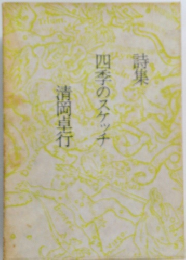 詩集
四季のスケッチ
清岡卓行